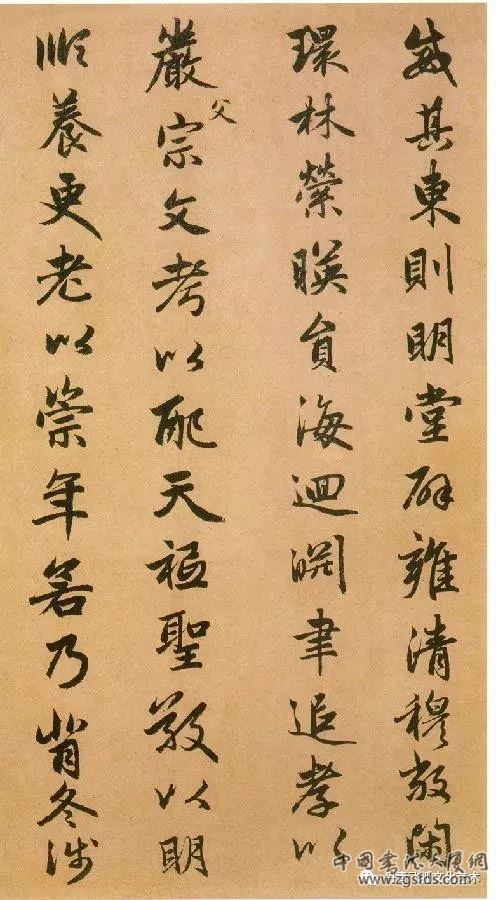 威其東則明堂辟雍清穆敞閑
環林縈暎員海迴淵聿追孝以
嚴父宗文考以配天祗聖敬以明
順養更老以崇年若乃背冬涉
中國書法大厦網